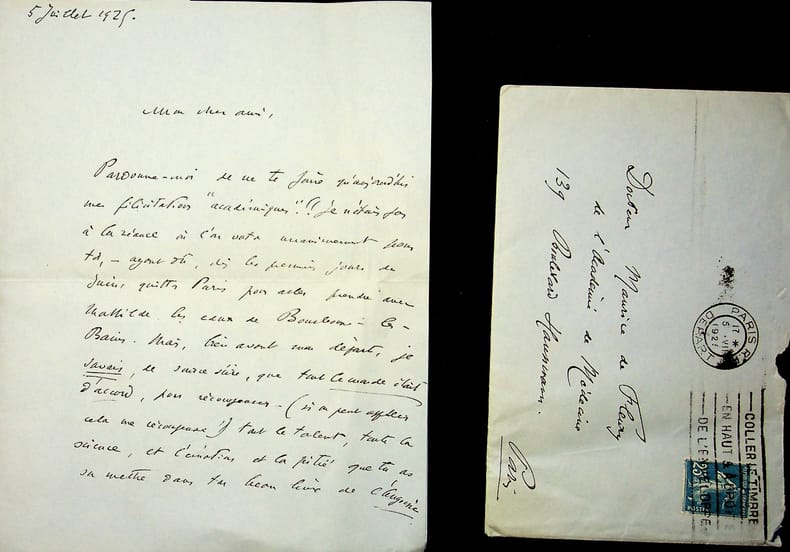 5 Juillet 1925.
Mon cher ami,
Pardonne-moi de ne te faire qu'aujourd'hui
mes félicitations "académiques"!! Je n'étais pas
à la séance où l'on vota unanimement pour
toi, – ayant dû, dès les premiers jours de
Juin, quitter Paris pour aller prendre avec
Mathilde les eaux de Bourbonne-les-
Bains. Mais, bien avant mon départ, je
savais, de source sûre, que tout le monde était
d'accord, pour récompenser – (si on peut appeler
cela une récompense!) tout le talent, toute la
science, et l'émotion et la pitié que tu as
su mettre dans ton beau livre de l'Angoisse
Docteur Maurice de Fleury
de l'Académie de Médecine
139 Boulevard Haussmann.
Paris
PARIS
17 *
5 - VII
192
DEPART
COLLER LE TIMBRE
EN HAUT & A DROITE
DE L'ENVELOPPE
25